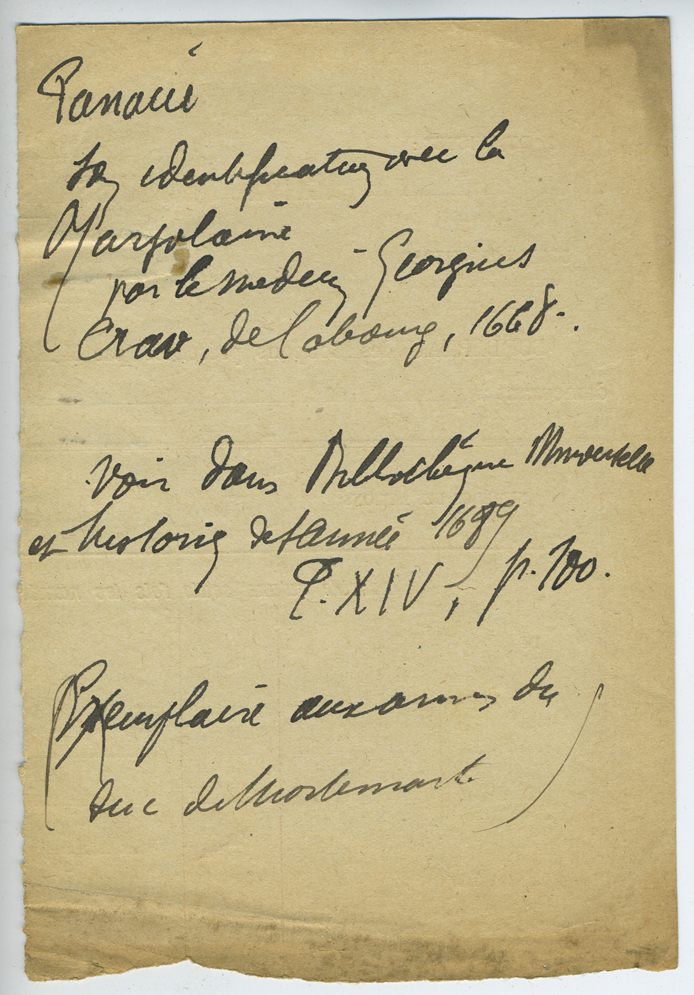 Panacée
Son identification avec la
Marjolaine
par le medecin Georgius
Crau, de Cobourg, 1668.
Voir dans Bibliothèque Universelle
et historiq de l'année 1689
T. XIV, p. 100.
(Exemplaire aux armes du
duc de Mortemart)